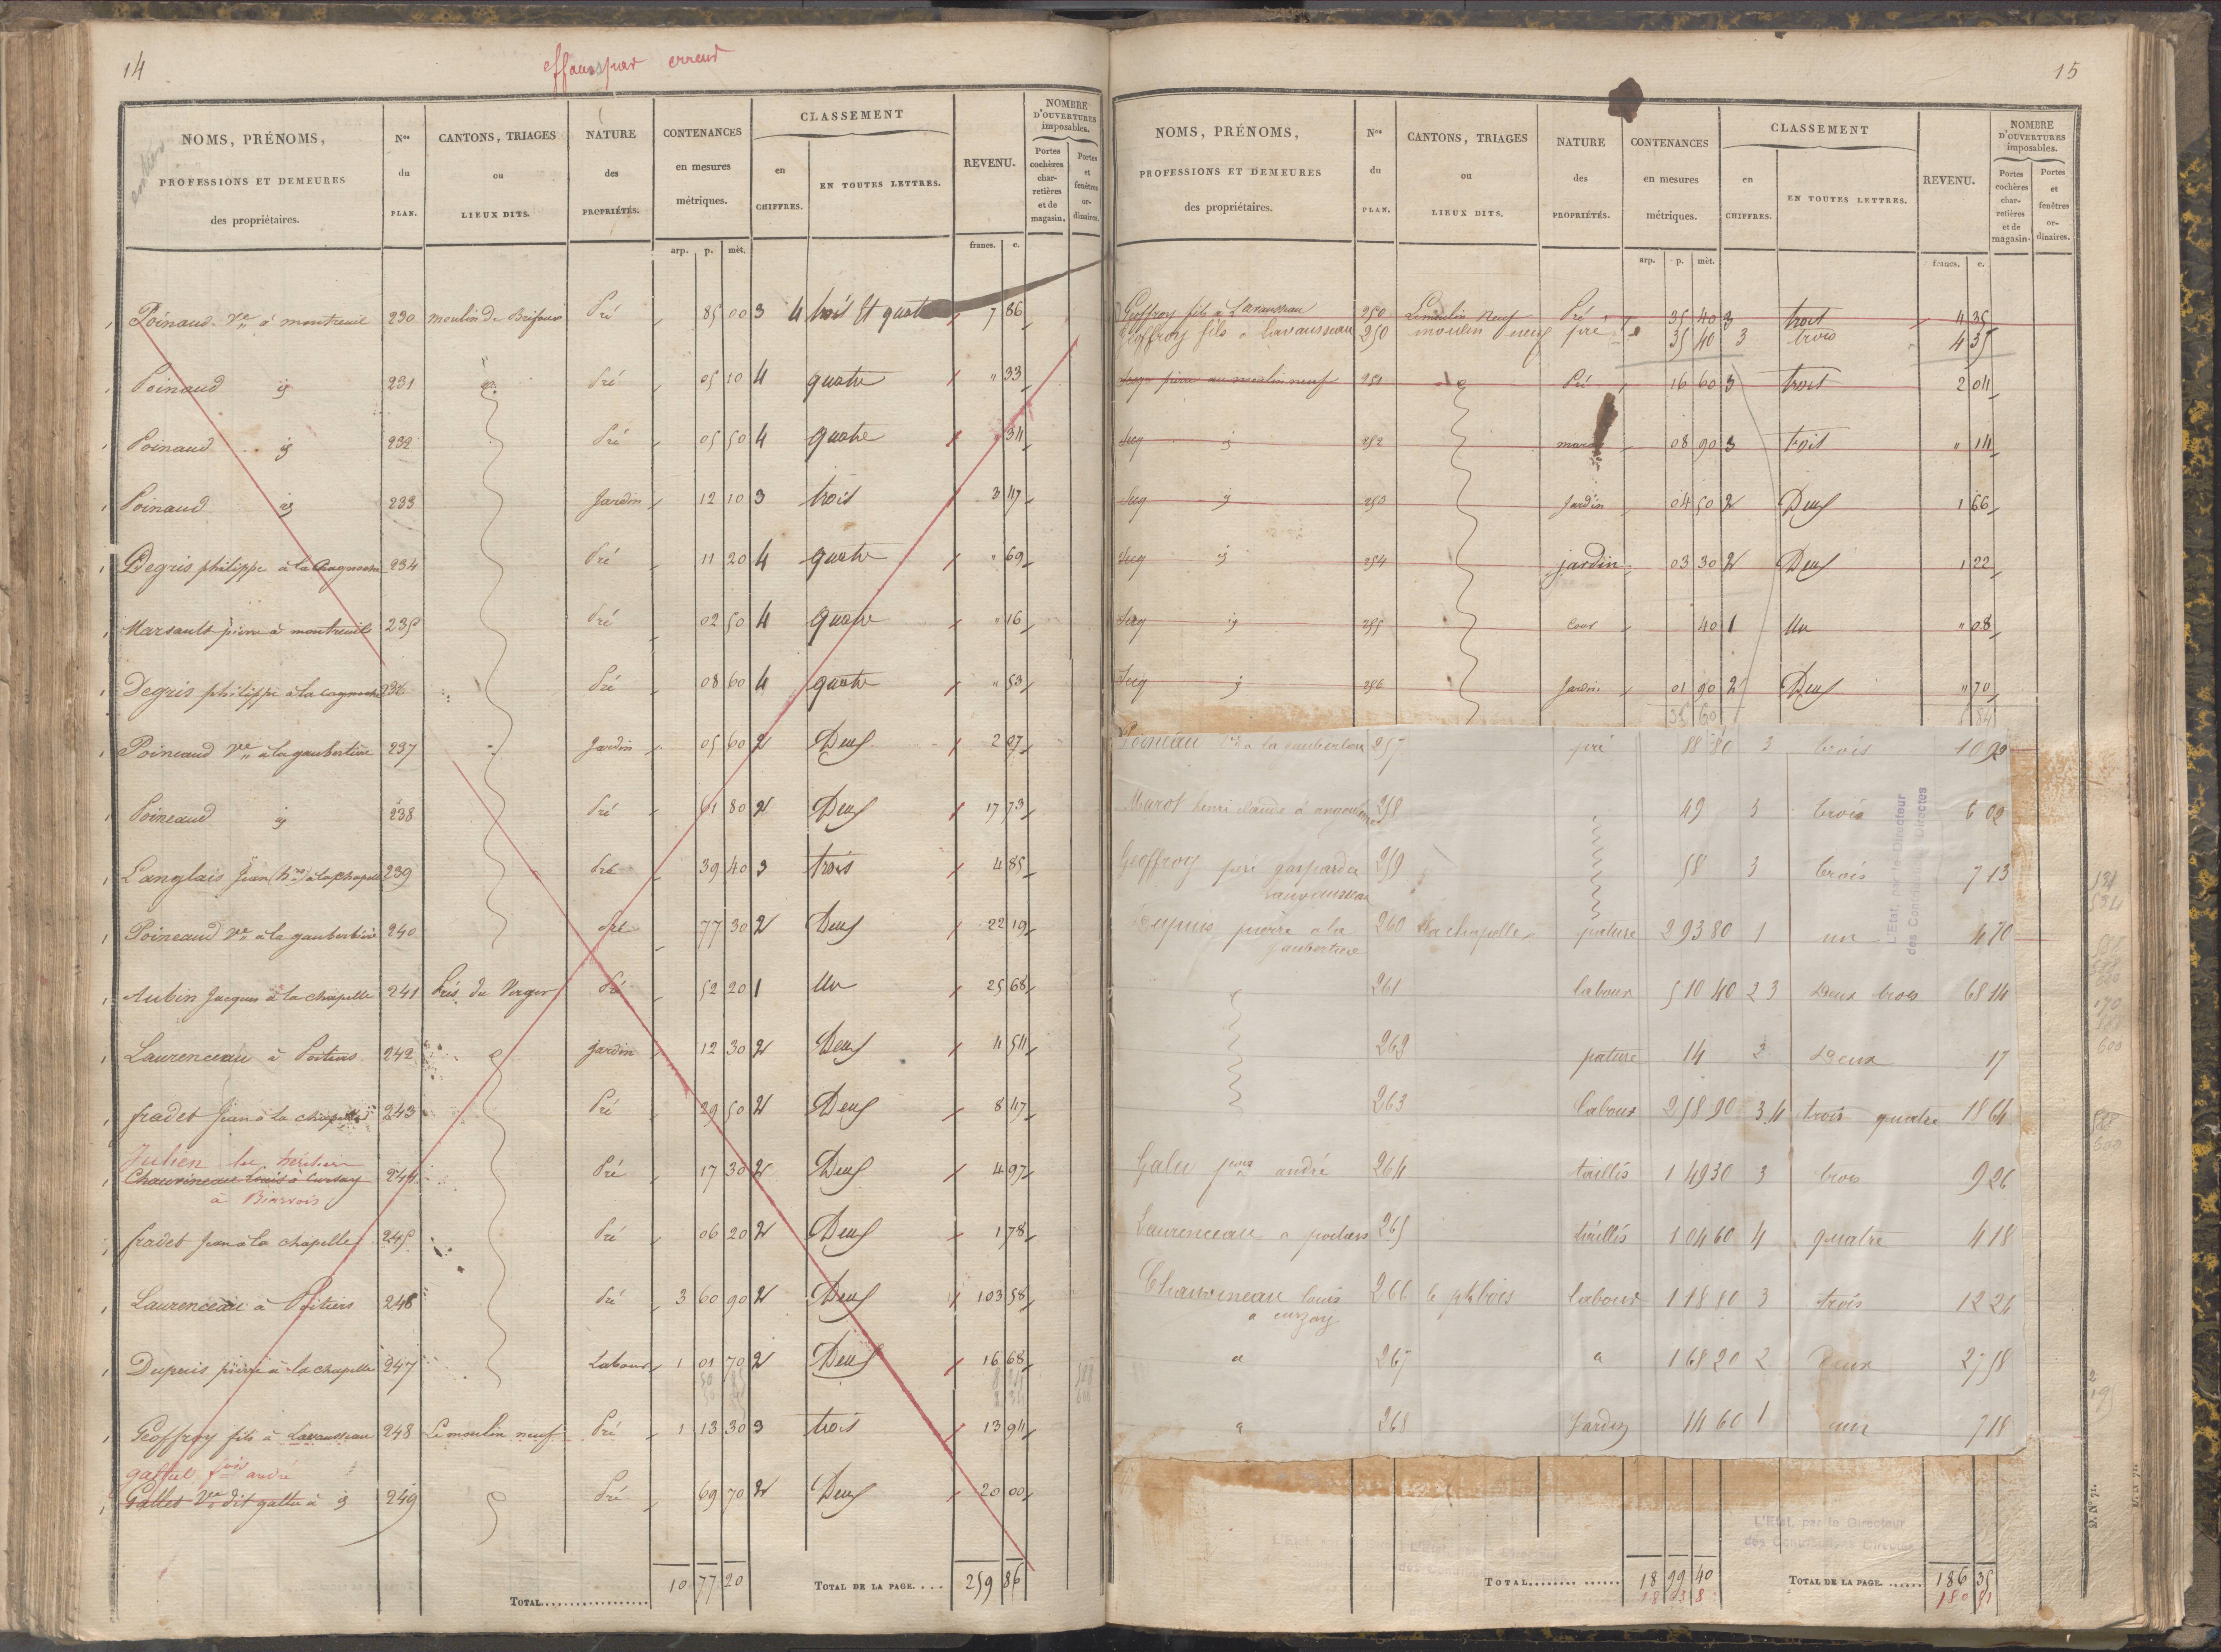 14
effacés par erreur
NOMS, PRÉNOMS,
PROFESSIONS ET DEMEURES
des propriétaires.
Nos
du
PLAN.
CANTONS, TRIAGES
ou
LIEUX DITS.
NATURE
des
PROPRIÉTÉS.
CONTENANCES
en mesures
métriques.
CLASSEMENT
en
CHIFFRES.
EN TOUTES LETTRES.
REVENU.
NOMBRE
D'OUVERTURES
imposables.
Portes
cochères
char-
retières
et de
magasin.
Portes
et
fenêtres
or-
dinaires.
arp. p. mèt.
francs. c.
Poinaud Ve à montreuil 230 moulin de Pré 85 00 3 4 trois et quatre 7 86
Poinaud ij 231 Pré 05 10 4 quatre " 33
Poinaud ij 232 Pré 05 50 4 quatre 34
Poinaud ij 233 Jardin 12 10 3 trois 3 47
Degris philippe à la 234 Pré 11 20 4 quatre " 69
Marsault pierre à montreuil 235 Pré 02 50 4 quatre " 16
Degris philippe à la 236 Pré 08 60 4 quatre " 53
Poineaud Ve à la gaubertière 237 Jardin 05 60 2 Deux 2 07
Poineaud ij 238 Pré 61 80 2 Deux 17 73
Langlais Jean à la chapelle 239 Pré 39 40 3 trois 4 85
Poineaud Ve à la gaubertière 240 Pré 77 30 2 Deux 22 19
Aubin Jacques à la chapelle 241 Prés du Verger Pré 52 20 1 Un 25 68
Laurenceau à Poitiers 242 jardin 12 30 2 Deux 4 54
fradet Jean à la chapelle 243 Pré 29 50 2 Deux 8 47
Julien les héritiers
Chauvineau Louis à Curzay 244 Pré 17 30 2 Deux 4 97
fradet Jean à la chapelle 245 Pré 06 20 2 Deux 1 78
Laurenceau à Poitiers 246 Pré 3 60 90 2 Deux 103 58
Dupuis pierre à la chapelle 247 Labour 1 01 70 2 Deux 16 68
Geoffroy fils à Lavausseau 248 Le moulin neuf Pré 1 13 30 3 trois 13 94
andré
249 Pré 69 70 2 Deux 20 00
TOTAL 10 77 20 TOTAL DE LA PAGE 259 86
15
NOMS, PRÉNOMS,
PROFESSIONS ET DEMEURES
des propriétaires.
Nos
du
PLAN.
CANTONS, TRIAGES
ou
LIEUX DITS.
NATURE
des
PROPRIÉTÉS.
CONTENANCES
en mesures
métriques.
CLASSEMENT
en
CHIFFRES.
EN TOUTES LETTRES.
REVENU.
NOMBRE
D'OUVERTURES
imposables.
Portes
cochères
char-
retières
et de
magasin.
Portes
et
fenêtres
or-
dinaires.
arp. p. mèt.
francs. c.
Geoffroy fils à Lavausseau 250 Le moulin Neuf Pré 35 40 3 trois 4 35
Geoffroy fils à Lavausseau 250 moulin neuf pré 35 40 3 trois 4 35
pierre au moulin neuf 251 Pré 16 60 3 trois 2 04
ij 252 08 90 3 trois " 14
ij 253 Jardin 04 50 2 Deux 1 66
ij 254 jardin 03 30 2 Deux 1 22
ij 255 Cour 40 1 Un " 08
ij 256 Jardin 01 90 2 Deux " 70
Poineau Ve à la gaubertière 257 pré 88 80 3 trois 10 92
Marot henri claude à angoulême 258 49 3 trois 6 02
Geoffroy père gaspard à 259 58 3 trois 7 13
Lavausseau
Dupuis pierre à la 260 la chapelle pature 2 93 80 1 un 4 70
gaubertière
261 labour 5 10 40 2 3 Deux trois 68 14
262 pature 14 2 Deux 17
263 labour 2 58 90 3 4 trois quatre 18 64
Galu andré 264 taillis 1 49 30 3 trois 9 26
Laurenceau à poitiers 265 taillis 1 04 60 4 quatre 4 18
Chauvineau louis 266 le pt bois labour 1 18 80 3 trois 12 26
à curzay
267 1 68 20 2 Deux 27 58
268 Jardin 14 60 1 un 7 18
L'Etat, par le Directeur
des Contributions Directes
L'Etat, par le Directeur
des Contributions Directes
TOTAL 18 99 40 TOTAL DE LA PAGE 186 35